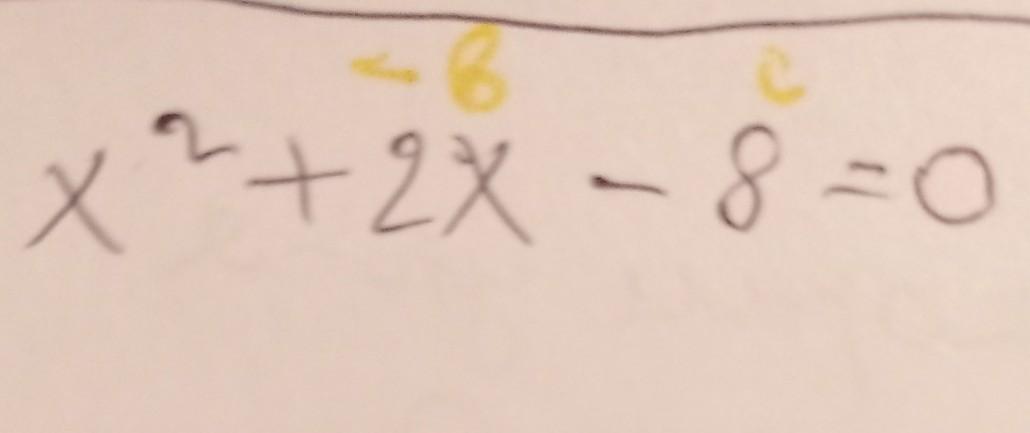 - B c
x² + 2x - 8 = 0